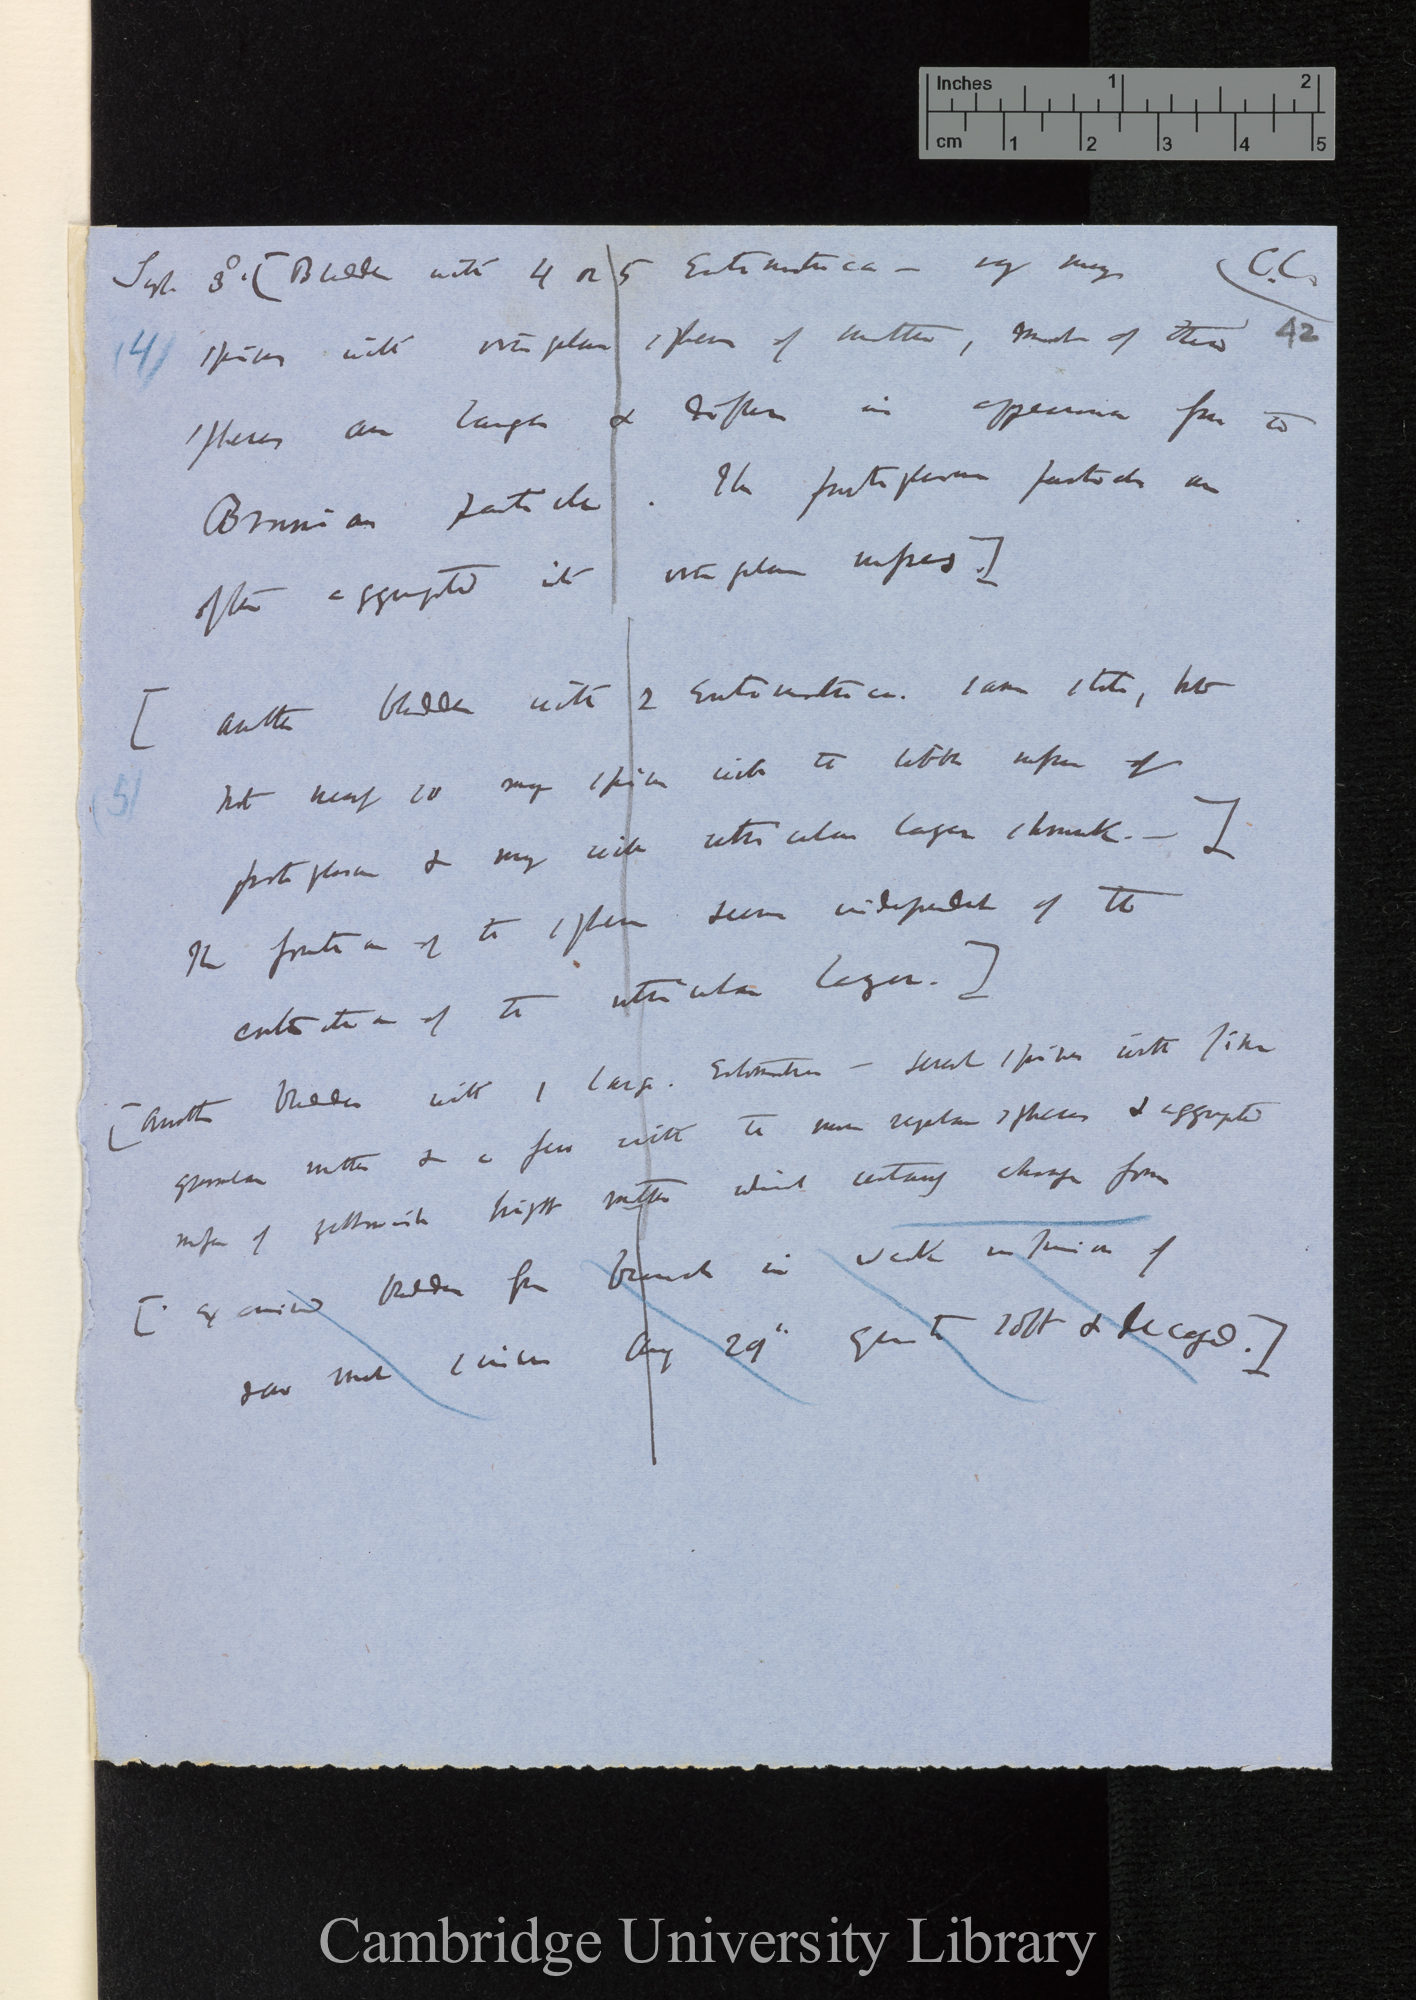 Inches 1 2
cm 1 2 3 4 5
Sept 3d. [Bladder with 4 or 5 Entomostraca – very many C.C.
(4) spines with irregular spheres of matter, much of these 42
spheres are larger & differ in appearance from the
Brunnian particles. The protoplasm particles are
often aggregated into irregular masses.]
[ Another bladder with 2 Entomostraca. same state, but
(5) not nearly so many spines with the little masses of
protoplasm & many with utricular layer shrunk. — ]
The formation of the spheres seems independent of the
contraction of the utricular layer.]
[Another bladder with 1 large. Entomostrac – several spines with fine
granular matter & a few with the more regular spheres & aggregated
masses of yellowish bright matter which certainly change form
[ Examined bladder from branch in weak infusion of
raw meat since Aug 29th quite soft & decayed.]
Cambridge University Library